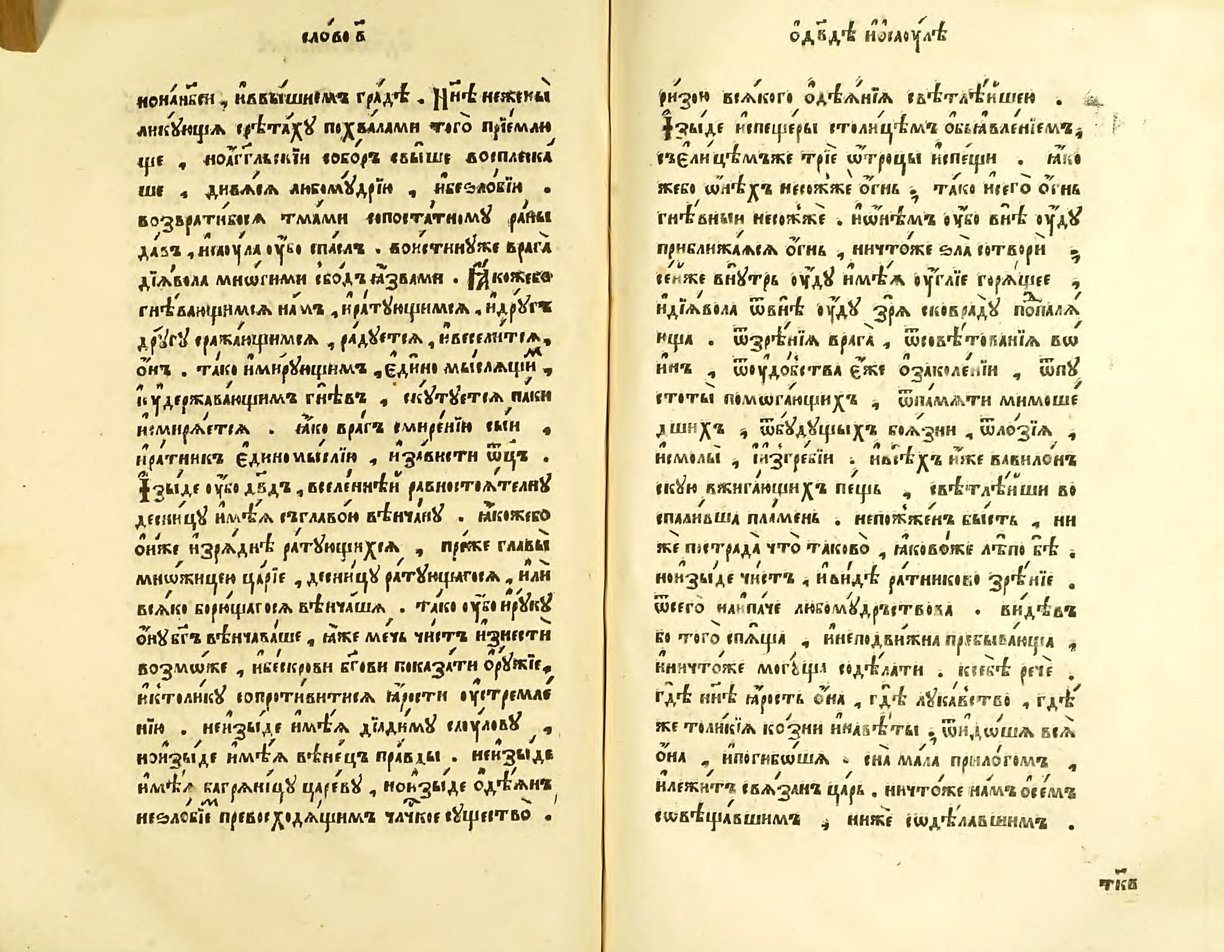 слово в҃
нонанбси , ивъвышнемъ градѣ . Нн҃ѣ нежены
ликующія срѣтаху похвалами того прїемлю
ще , ноаг҃гльскїи соборъ свыше восплеска
ше , дивяся любомудрїю , ибеѕлобїю .
возвратибося тмами сопостатному раны
давъ , исаула оубо спаслъ . воистинуже врага
дїявола мнѡгими ѕбодъ язвами . Якожебо
гнѣвающимся намъ , иратующимся , идругъ
другу сражающимся , радуется , ивеселится ,
онъ . тако имирующимъ , єдино мыслящимъ ,
иудержавающимъ гнѣвъ , скутуется паки
исмиряется . яко врагъ смиренїю сыи ,
иратникъ єдиномыслїю , изависти ѿц҃ъ .
Ізыде оубо дв҃дъ , вселеннѣй равностоятелну
десницу имѣя съглавою вѣнчану . якожебо
онѣже изряднѣ ратующихся , преже главы
мнѡжицею царїе , десницу ратующагося , или
всяко борющагося вѣнчаша . тако оубо ируку
ону бг҃ъ вѣнчаваше , яже мечь чистъ изнести
возмѡже , ибескрови бг҃ови показати оружїе ,
иктолику сопротивитися ярости оустремле
нїю . неизыде имѣя дїадиму саулову ,
ноизыде имѣя вѣнецъ правды . неизыде
имѣя багряницу цареву , ноизыде одѣянъ
неѕлобїемъ превосходящимъ чл҃чкое существо .
одв҃дѣ иосаоулѣ
ризою всякого одѣянїя свѣтлѣйшею .
Ізыде испещеры столицѣмъ обьявленїемъ ,
съєлицѣмъже трїе ѿтроцы испещи . яко
жебо ѡнѣхъ несожже огнь , тако исего огнь
гнѣвныи несожже . иѡнѣмъ оубо внѣ оуду
приближаяся огнь , ничтоже ѕла сотвори ,
сеиже внутрь оуду имѣя оуглїе горящее ,
идїявола ѿвнѣ оуду зря сковраду попаля
юща . ѿзрѣнїя врага , ѿсовѣтованїя вѡ
инъ , ѿоудобства єже озаколенїи , ѿпу
стоты помѡгающихъ , ѿпамяти мимоше
дшихъ , ѿбудущыхъ боязни , ѿлозїя ,
исмолы , їизгребїи . ивсѣхъ иже вавилон
скую вжигающихъ пещь , свѣтлѣйши во
спалившa пламень . непожженъ бысть , ни
же пострада что таково , яковоже лѣпо бѣ .
ноизыде чистъ , ивидѣ ратниково зрѣнїе .
ѿсего наипаче любомудръствова . видѣвъ
бо того спяща , инеподвижна пребывающа ,
иничтоже могуща содѣлати . ксебѣ рече .
гдѣ нн҃ѣ ярость она , гдѣ лукавство , гдѣ
же толикїя козни инавѣты . ѿидѡша вся
она , ипогибѡша . сна мала прилогомъ ,
илежитъ связанъ царь . ничтоже намъ осемъ
сѡвѣщавшимъ , ниже сѡдѣлавшимъ .
тк҃в